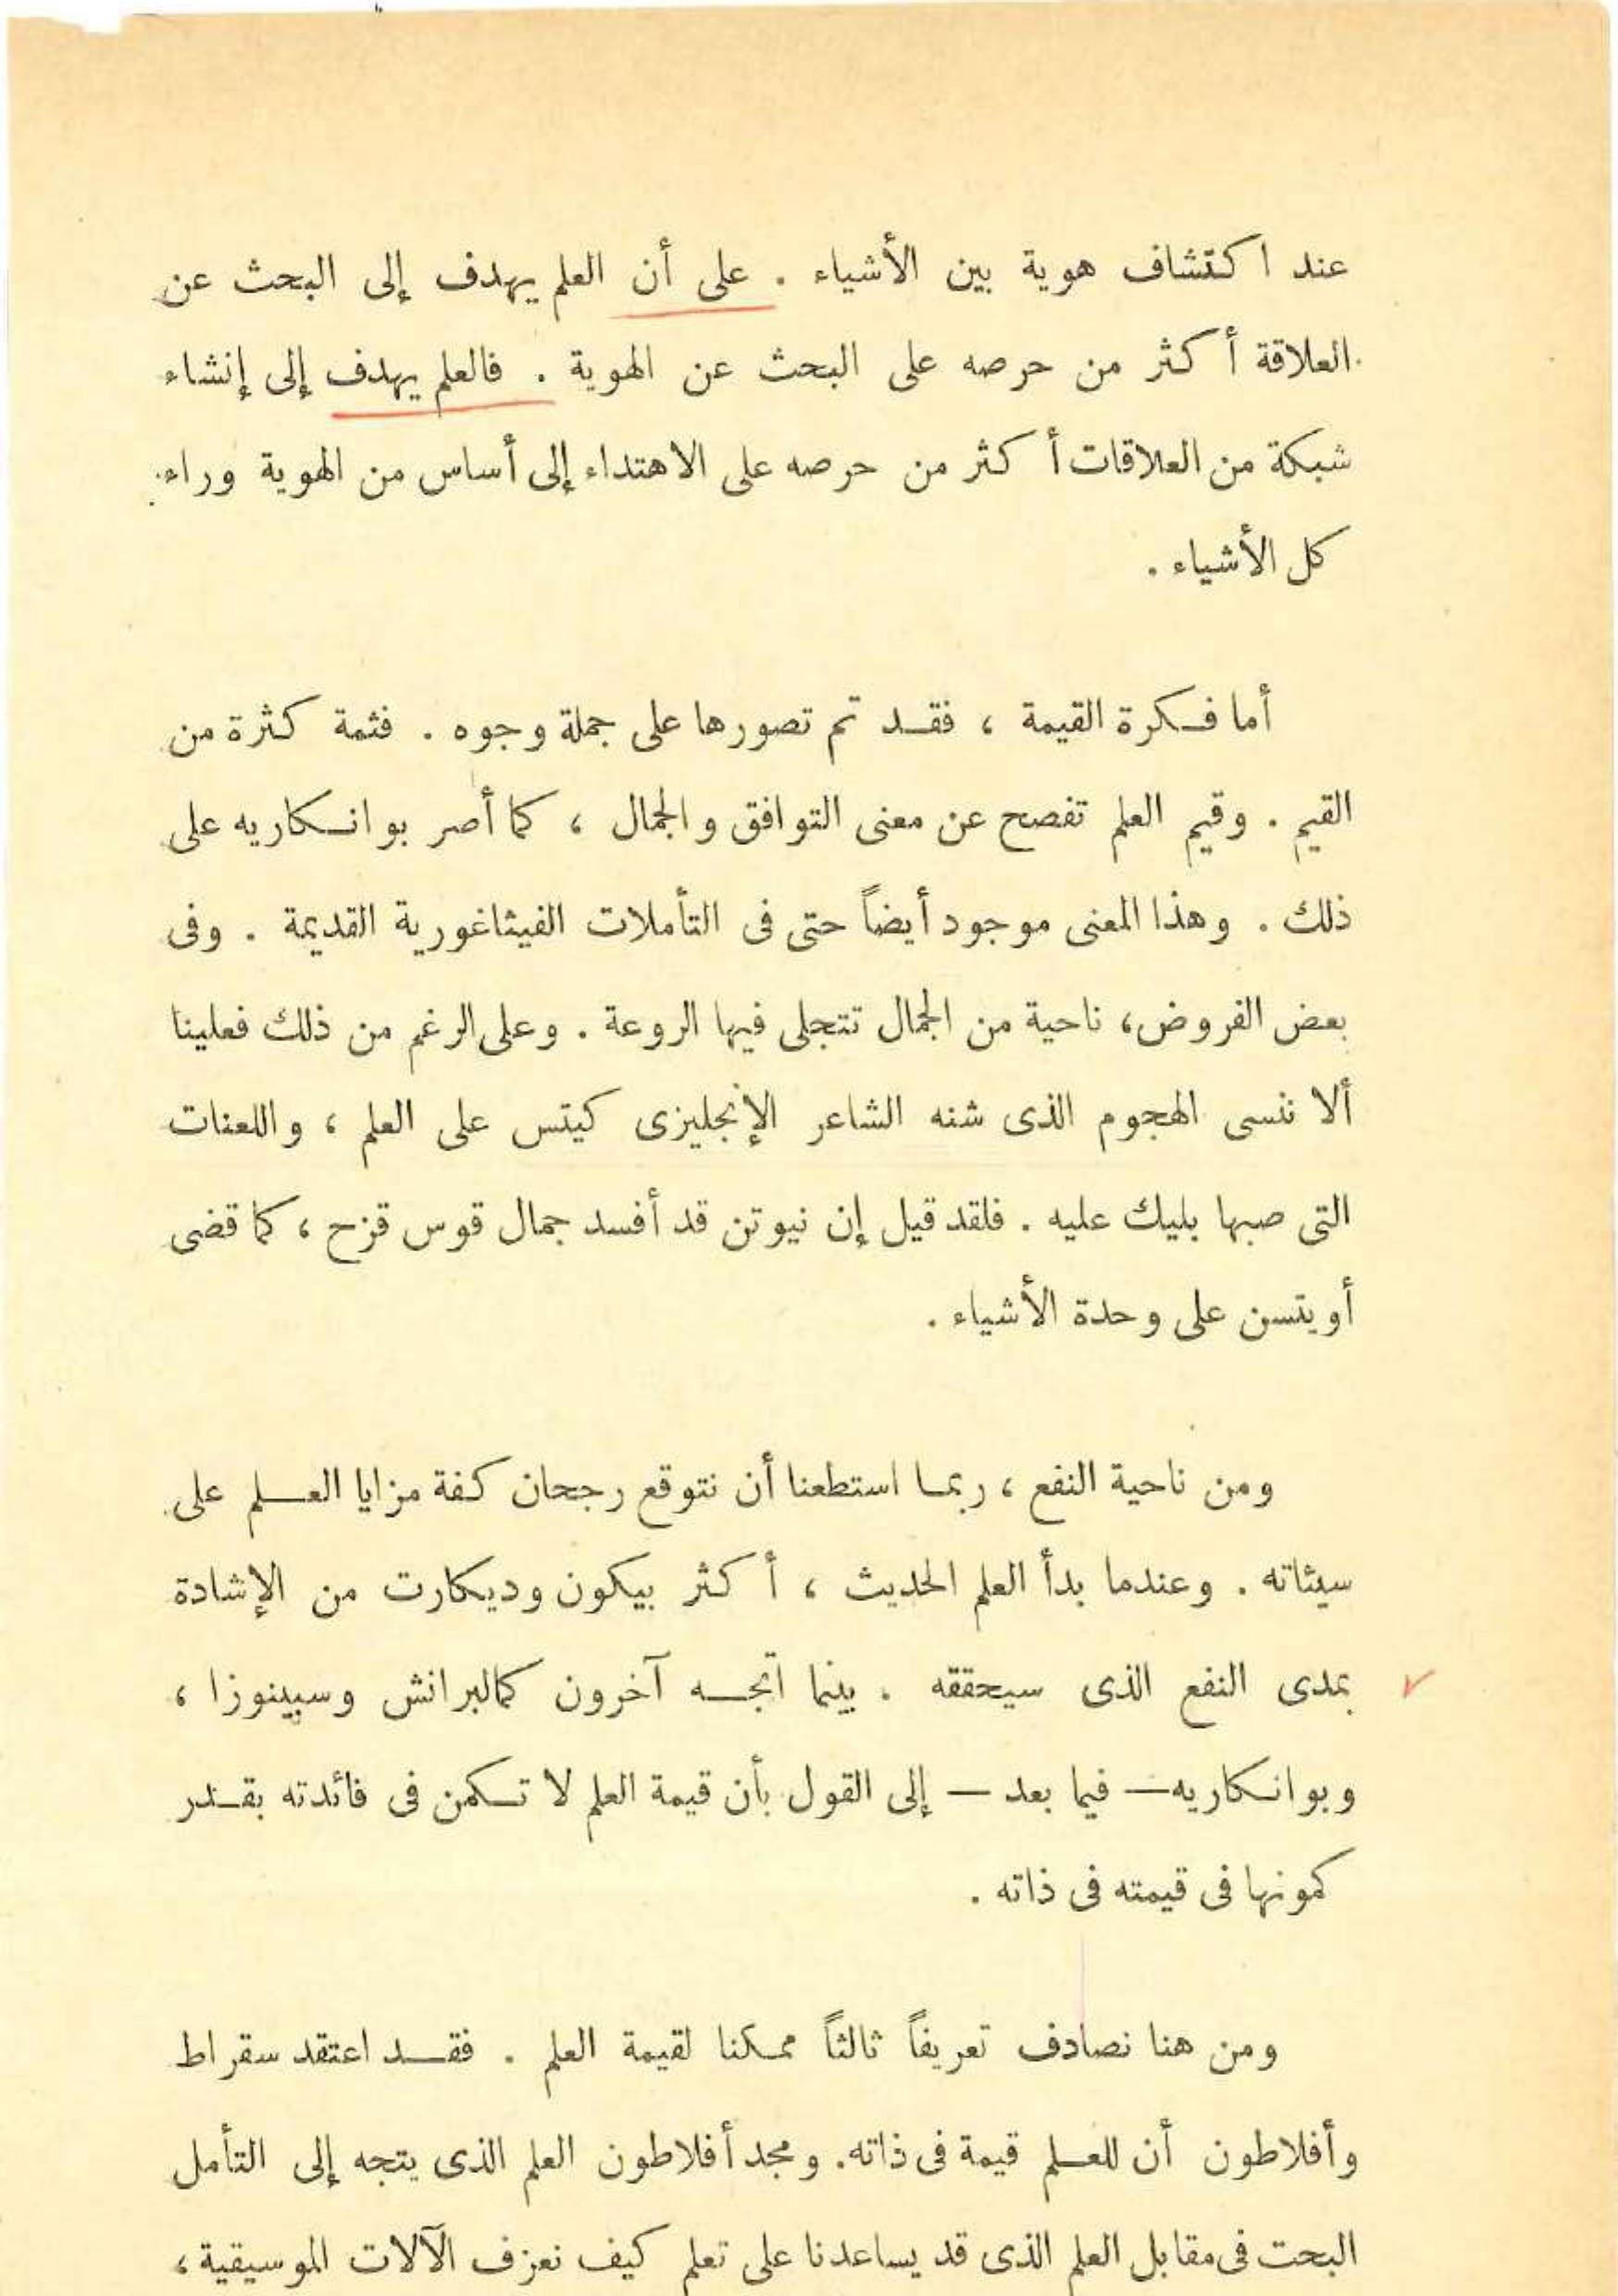 عند اكتشاف هوية بين الأشياء . على أن العلم يهدف إلى البحث عن
العلاقة أكثر من حرصه على البحث عن الهوية . فالعلم يهدف إلى إنشاء
شبكة من العلاقات أكثر من حرصه على الاهتداء إلى أساس من الهوية وراء
كل الأشياء .
أما فكرة القيمة ، فقد تم تصورها على جملة وجوه . فثمة كثرة من
القيم . وقيم العلم تفصح عن معنى التوافق والجمال ، كما أصر بوانكاريه على
ذلك . وهذا المعنى موجود أيضاً حتى فى التأملات الفيثاغورية القديمة . وفى
بعض الفروض، ناحية من الجمال تتجلى فيها الروعة . وعلى الرغم من ذلك فعلينا
ألا ننسى الهجوم الذى شنه الشاعر الإنجليزى كيتس على العلم ، واللعنات
التى صبها بليك عليه . فلقد قيل إن نيوتن قد أفسد جمال قوس قزح ، كما قضى
أويتسن على وحدة الأشياء .
ومن ناحية النفع ، ربما استطعنا أن نتوقع رجحان كفة مزايا العلم على
سيئاته . وعندما بدأ العلم الحديث ، أكثر بيكون وديكارت من الإشادة
بمدى النفع الذى سيحققه . بينما اتجه آخرون كمالبرانش وسبينوزا ،
وبوانكاريه — فيما بعد — إلى القول بأن قيمة العلم لا تكمن فى فائدته بقدر
كمونها فى قيمته فى ذاته .
ومن هنا نصادف تعريفاً ثالثاً ممكنا لقيمة العلم . فقد اعتقد سقراط
وأفلاطون أن للعلم قيمة فى ذاته. ومجد أفلاطون العلم الذى يتجه إلى التأمل
البحت فى مقابل العلم الذى قد يساعدنا على تعلم كيف نعزف الآلات الموسيقية ،